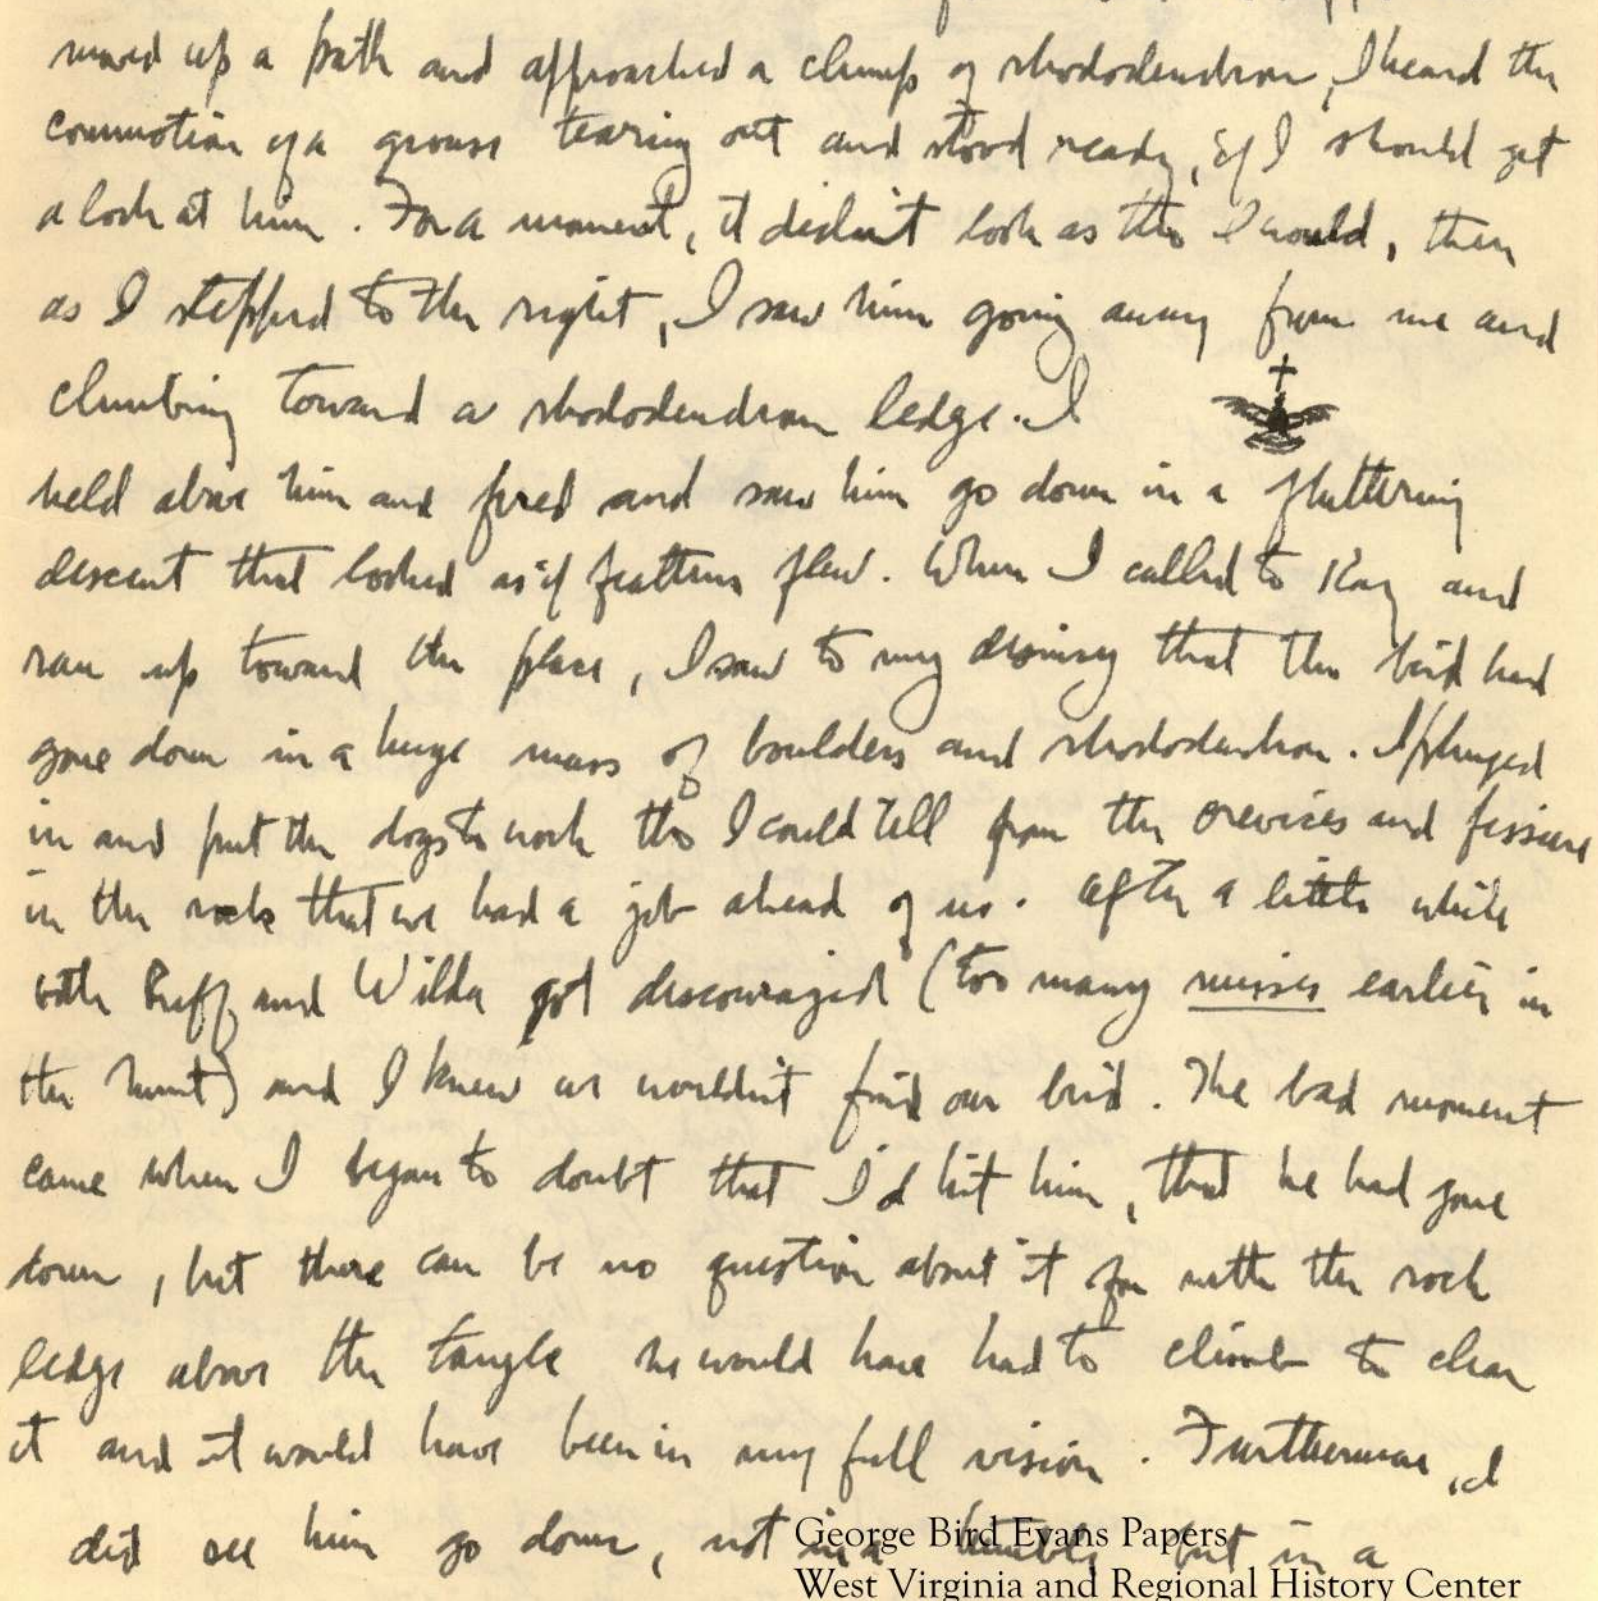 moved up a path and approached a clump of rhododendron, I heard the
commotion of a grouse tearing out and stood ready, if I should get
a look at him. For a moment, it didn't look as tho I would, then
as I stepped to the right, I saw him going away from me and
climbing toward a rhododendron ledge. I
held above him and fired and saw him go down in a fluttering
descent that looked as if feathers flew. When I called to Kay and
ran up toward the place, I saw to my dismay that the bird had
gone down in a huge mass of boulders and rhododendron. I plunged
in and put the dogs to work tho I could tell from the crevices and fissures
in the rocks that we had a job ahead of us. After a little while
both Ruff and Wilda got discouraged (too many misses earlier in
the hunt) and I knew we wouldn't find our bird. The bad moment
came when I began to doubt that I'd hit him, that he had gone
down, but there can be no question about it for with the rock
ledge above the tangle he would have had to climb to clear
it and it would have been in my full vision. Furthermore, I
did see him go down, not in a but in a
George Bird Evans Papers
West Virginia and Regional History Center